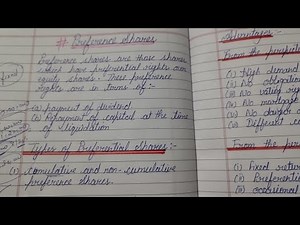 # Preference Shares
Preference shares are those shares
which have preferential rights over
equity shares. These preference
rights are in terms of :-
(a) payment of dividend
(b) Repayment of capital at the time
of liquidation
Types of Preferential Shares:-
(1) comulative and non-cumulative
preference shares.
Advantages:-
From the perspe
(i) High demand
(ii) No obligatio
(iii) No voting rig
(iv) No mortgage
(v) No danger
(vi) Different c
From the per
(i) Fixed retu
(ii) Preferentia
(iii) occasional